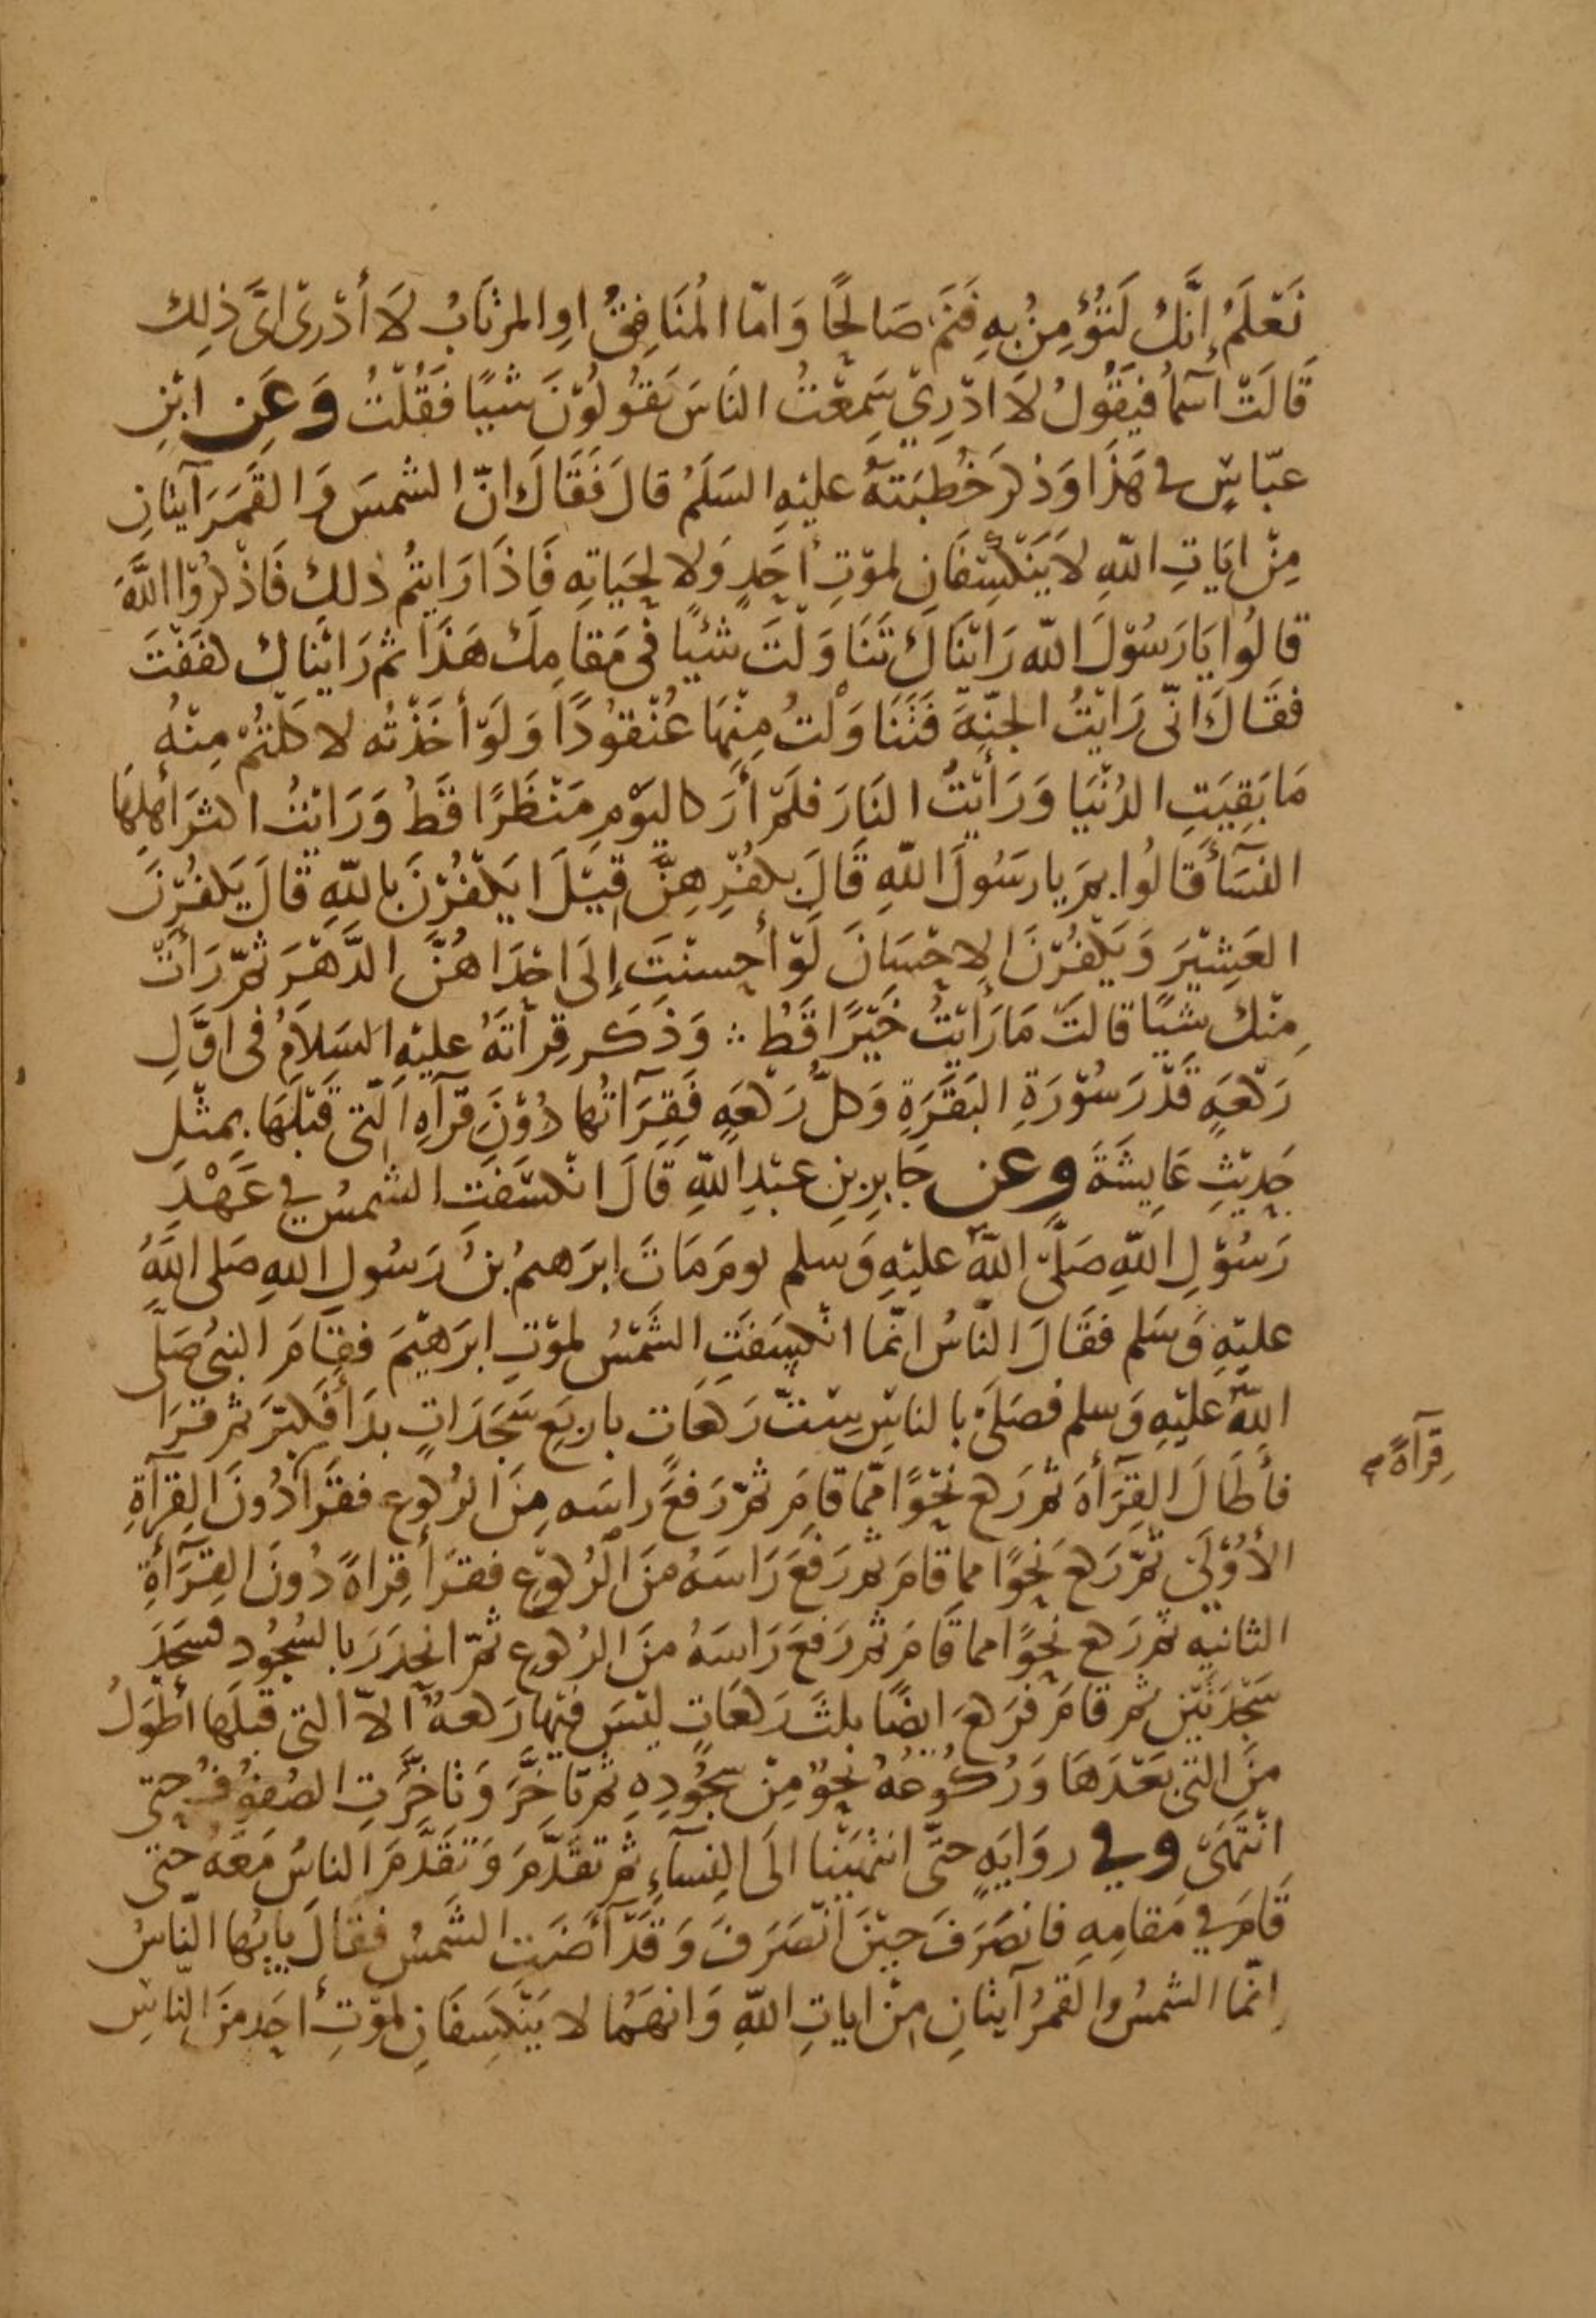 نَعْلَمُ إِنَّكَ لَتُؤْمِنُ بِهِ فَنَمْ صَالِحًا وَامّا المُنَافِقُ اوِ المرْتَابُ لَا أَدْرِى اىَّ ذلِك
قَالَتْ أَسمَآ فَيَقُولُ لَا ادْرِيْ سَمِعْتُ النَاسَ يَقُولُوْنَ شَيًا فَقُلْتُ وَعَنِ ابْنِ
عبّاسٍ فى هَذَا وَذكرَ خُطْبَتَهُ عليْهِ السَلَمُ قالَ فَقَالَ انّ الشمسَ وَالقَمَرَ آيتَانِ
مِنْ ايَاتِ اللّهِ لاَ يَنْكَسِفَانِ لموْتِ أحَدٍ وَلا لِحَيَاتِهِ فَاذَا رَايتُم ذلِكَ فَاذْكرُوْا اللَّهَ
قالُوا يَا رَسُوْلَ اللّه رَايْنَاكَ تَنَاوَلْتَ شَيْئًا فى مَقَامِكَ هَذَا ثم رَايْنَاك كفَفْتَ
فقَالَ انّى رَايْتُ الجنّهَ فَتَنَاوَلْتُ مِنْهَا عُنْقوُدًا وَلَوْ أخَذْتُه لاكَلْتُمْ مِنْهُ
مَا بَقِيَتِ الدُنْيَا وَرَأَيْتُ النَارَ فلَمْ أَرَ كاليَوْمِ مَنْظَرًا قَطُ وَرَايْتُ اكثرَ أهلِهَا
النسَآءَ قَالُوا بِمَ يا رَسُولَ اللّهِ قَالَ بِكُفْرِهِنَّ قِيْلَ ايَكْفُرْنَ بِاللّهِ قَالَ يَكفُرْنَ
العَشِيْرَ وَيَكْفُرْنَ الاِحْسَانَ لَوْ أحسنْتَ إِلَى احْدَاهُنَّ الدَّهْرَ ثمّ رَأَتْ
مِنْكَ شيًا قالتْ مَا رَأَيْتُ خَيْرًا قَطُ ∴ وَذَكَر قِرأتَهُ عليْهِ السَلَامُ فى اوَّلِ
رَكْعَهٍ قَدْرَ سُوْرَةِ البَقَرَةِ وَكلُّ رَكْعَهٍ فَقِرَآتُها دُوْنَ قرآهِ الّتى قَبْلَهَا بِمثْلِ
حَدِيْثِ عَايِشَةَ وعن جَابِرِ بنِ عبْدِ اللّهِ قَالَ انْكسَفَتِ الشمسُ فِي عَهْدِ
رَسُوْلِ اللّهِ صَلَّى اللّهُ عليْهِ وَسلم يومَ مَاتَ ابرَهيمُ بنُ رَسُولِ اللهِ صَلى اللَّهُ
عليْهِ وَسَلم فقَالَ النّاسُ انّما انْكسَفتِ الشَمْسُ لموْتِ ابرَهيْمَ فقَامَ النبىُ صَلَّى
اللّهُ عليْهِ وَسلم فصَلَى بالناسِ سِتَّ رَكعَات باربَعِ سَجَدَاتٍ بدَأَ فكبّرَ ثم قرَا
فأطَالَ القِرَأهَ ثم رَكع نَحْوًا ممّا قامَ ثمّ رَفعَ راسَه مِنَ الرُكوُعِ فقَرَا دُونَ القِرَآةِ
الأُوْلَى ثمّ رَكعَ نَحوًا مما قامَ ثم رَفعَ رَاسَهُ منَ الرُكوْعِ فقرَأ قِراةً دُونَ القِرَآأةِ
الثانيه ثم رَكع نَحْوًا مما قَامَ ثم رَفعَ رَاسَهُ منَ الرُكوعِ ثمّ انحدَرَ بالسُجُود فسَجَدَ
سَجْدَتَيْنِ ثم قامَ فرَكعَ ايضًا ثلثَ رَكعَاتٍ ليْسَ فيْها رَكعهٌ الاّ التى قبلَها أطْوَلُ
منَ التى بَعْدَهَا وَرُكُوعُهُ نَحْوٌ مِنْ سجُوْدِهِ ثم تَاخَّرَ وَتَاخَّرَتِ الصُفوُفُ حتى
انْتَهَى وفي روَايَهٍ حتَّى انتهَيْنَا الَى النِسآءِ ثم تقَدّمَ وَتَقَدَّمَ الناسُ مَعَهُ حتى
قَامَ في مَقامِهِ فانصَرَفَ حيْنَ انْصَرَفَ وَقَدْ آضَت الشَمسُ فقالَ يايّها النّاسُ
اِنّما الشمسُ وَالقمرُ آيتانِ مِنْ اياتِ اللّهِ وَانهُمَا لا يَنْكَسِفَانِ لموْتِ أحَدٍ منَ النَاسِ
قِرآةً